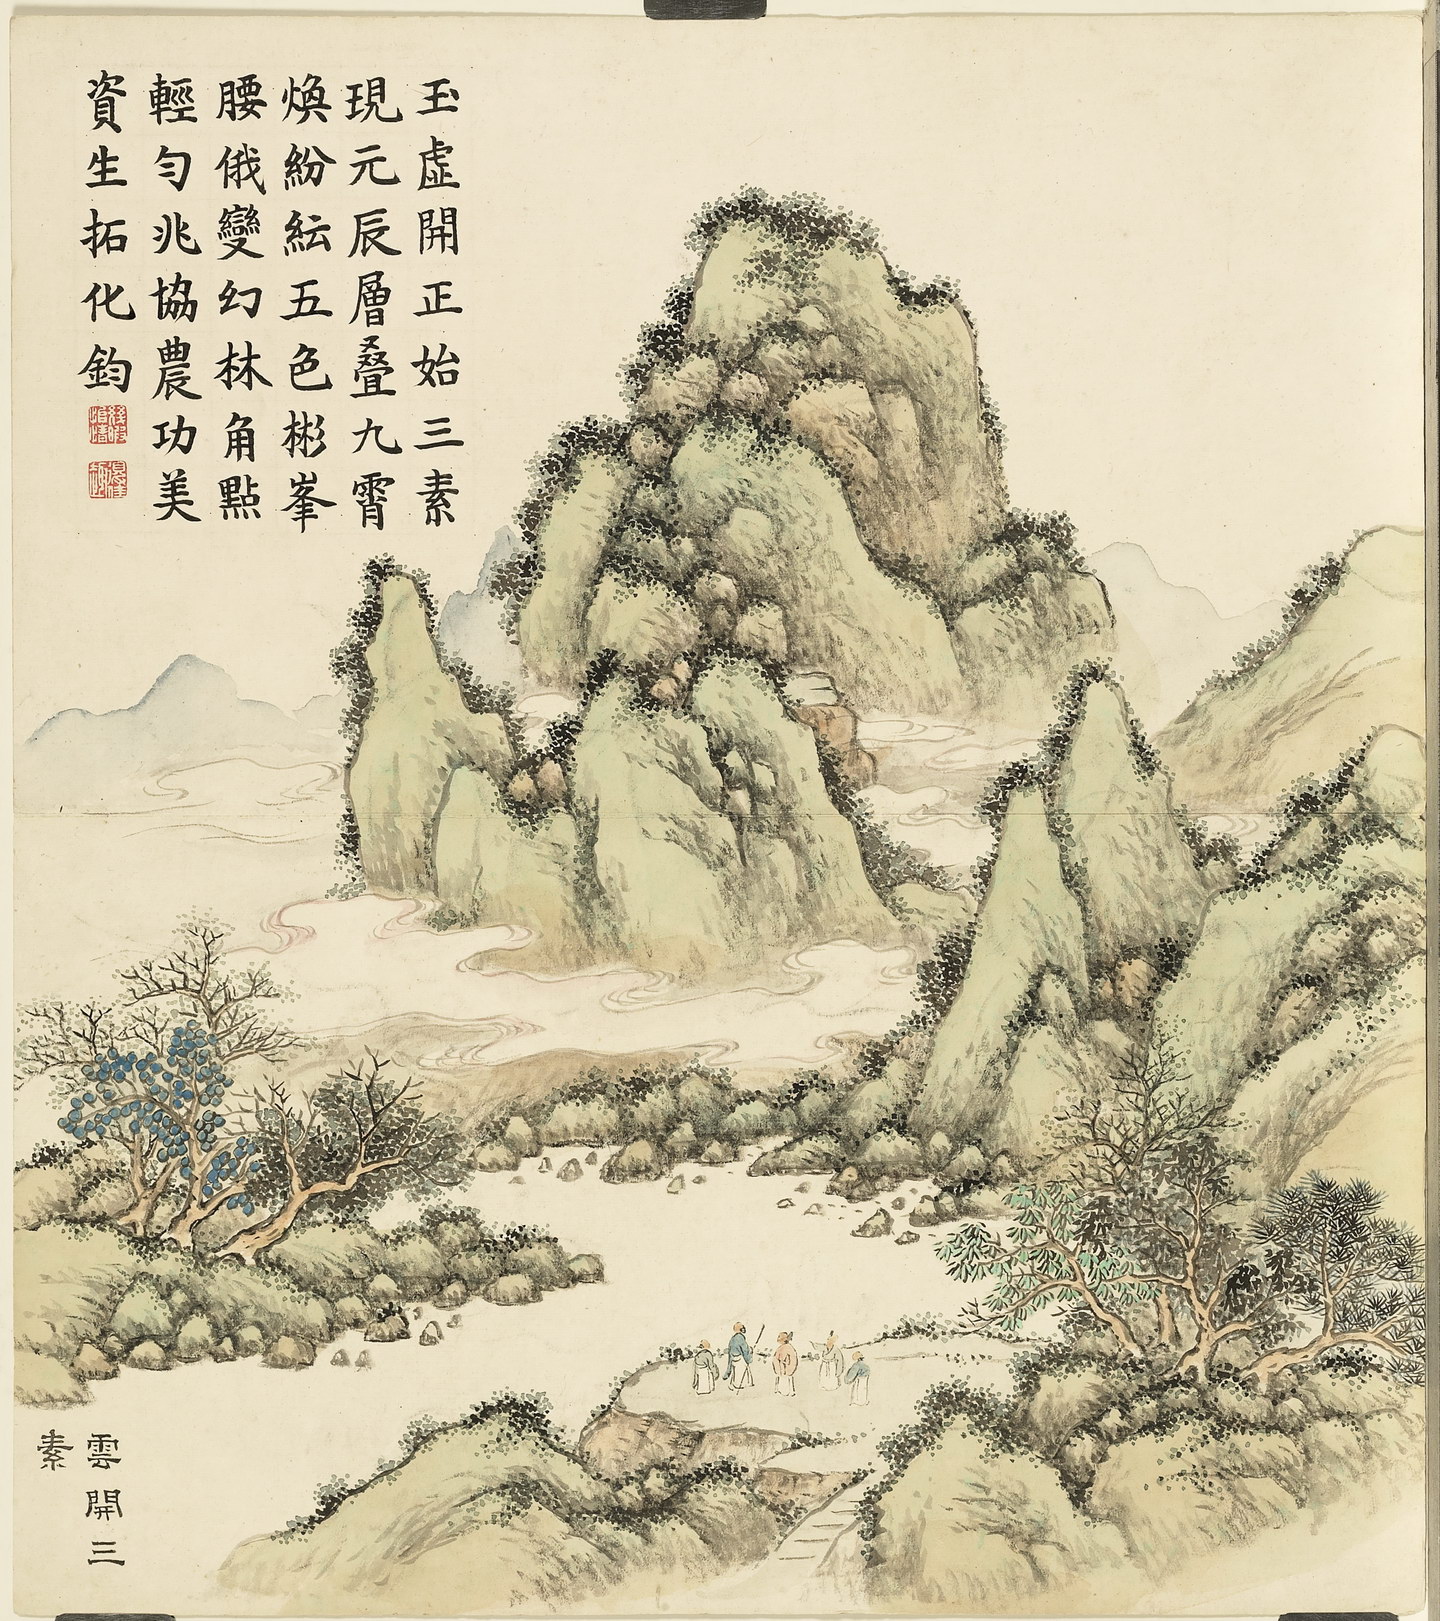 玉虛開正始三素
現元辰層疊九霄
煥紛紜五色彬峯
腰俄變幻林角點
輕勻兆協農功美
資生拓化鈞
雲開三
素